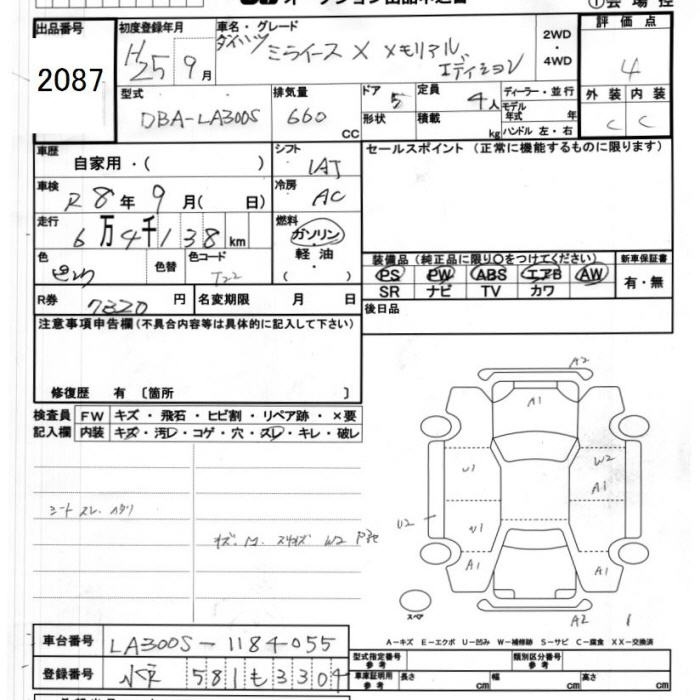 出品番号
2087
初度登録年月
H25 9月
車名・グレード
ダイハツ
ミライース X メモリアル
エディション
2WD
・
4WD
評価点
4
外装 内装
C C
型式
DBA-LA300S
排気量
660 CC
ドア 5
形状
定員 4人
積載 kg
ディーラー・並行
モデル
年式 年
ハンドル 左・右
車歴
自家用・( )
シフト
IAT
セールスポイント (正常に機能するものに限ります)
車検
R8年9月( 日)
冷房
AC
走行
6万4千138km
燃料
ガソリン
・
軽油
( )
色
色替
色コード
T22
装備品 (純正品に限り〇をつけてください)
PS PW ABS エアB AW
SR ナビ TV カワ
新車保証書
有・無
R券 7320 円
名変期限 月 日
後日品
注意事項申告欄(不具合内容等は具体的に記入して下さい)
修復歴 有 〔箇所 〕
検査員
記入欄
FW キズ・飛石・ヒビ割・リペア跡・×要
内装 キズ・汚レ・コゲ・穴・スレ・キレ・破レ
シートスレ.
W2
A2
A1
U1
W2
A1
U2
U1
A1
A1
A2
スペア
A-キズ E-エクボ U-凹み W-補修跡 S-サビ C-腐食 XX-交換済
車台番号
LA300S-1184055
登録番号
581 も 3304
型式指定番号
参考
類別区分番号
参考
車庫証明用
参考
長さ cm
幅 cm
高さ cm